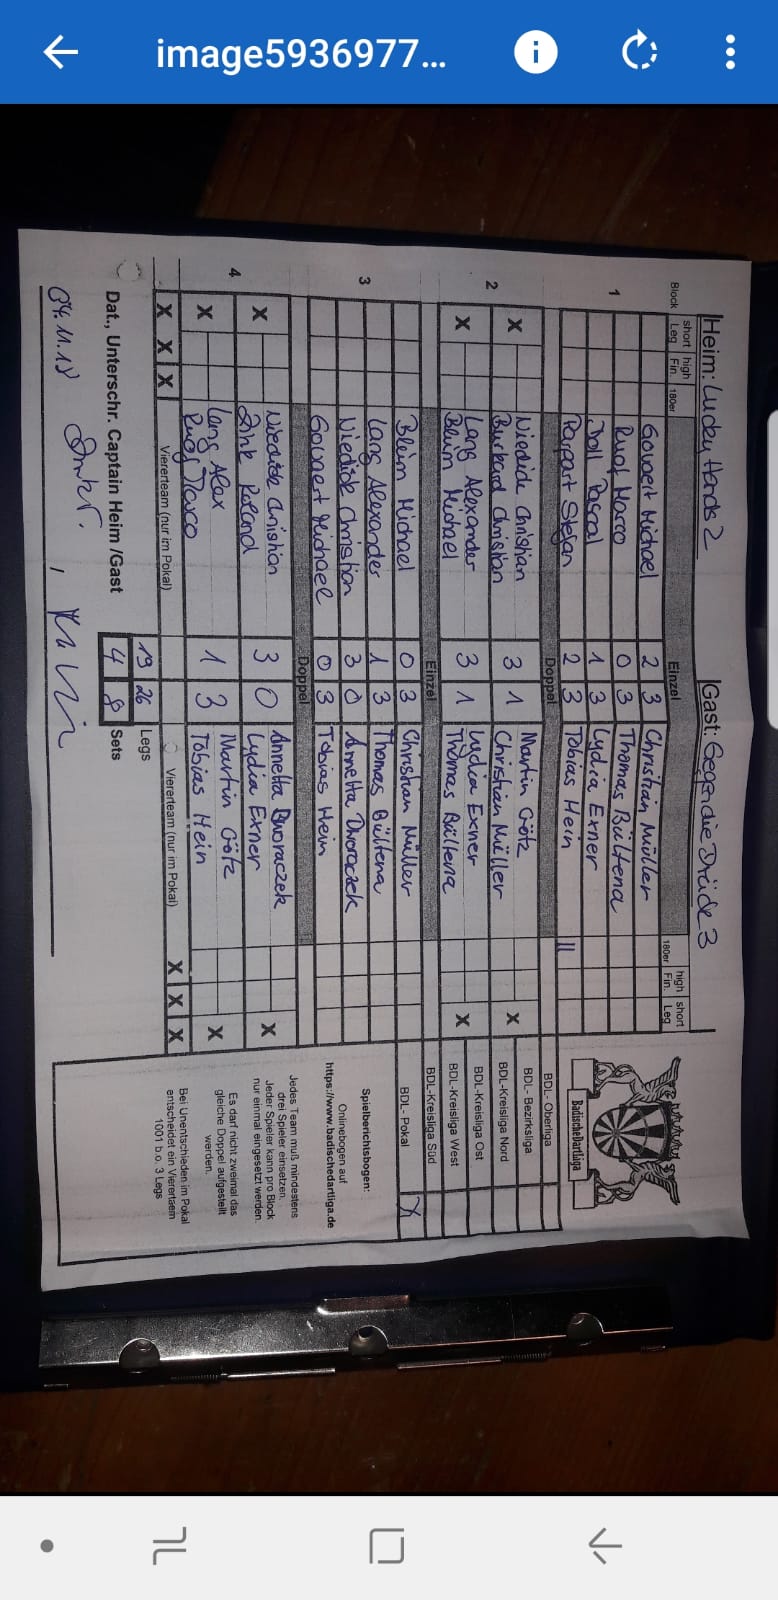 image5936977...
Heim: Lucky Hands 2 Gast: Gegen die Drücke 3
Block short Leg high Fin. 180er Einzel 180er high Fin. short Leg
1 Govaert Michael 2 3 Christian Müller
Ruof Marco 0 3 Thomas Bültena
Doll Pascal 1 3 Lydia Exner
Parpart Stefan 2 3 Tobias Hein ||
Doppel
2 X Niedick Christian 3 1 Martin Götz X
Burkard Christian Christian Müller
X Lang Alexander 3 1 Lydia Exner X
Blum Michael Thomas Bültena
Einzel
3 Blum Michael 0 3 Christian Müller
Lang Alexander 1 3 Thomas Bültena
Niedick Christian 3 0 Annetta Dworaczek
Govaert Michael 0 3 Tobias Hein
Doppel
4 X Niedick Christian 3 0 Annetta Dworaczek X
Roland Lydia Exner
X Lang Alex 1 3 Martin Götz X
Ruof Marco Tobias Hein
X X X Viererteam (nur im Pokal) Viererteam (nur im Pokal) X X X
19 26 Legs
Dat., Unterschr. Captain Heim /Gast 4 8 Sets
04.11.18
BadischeDartLiga
BDL- Oberliga
BDL- Bezirksliga
BDL-Kreisliga Nord
BDL-Kreisliga Ost
BDL-Kreisliga West
BDL-Kreisliga Süd
BDL- Pokal X
Spielberichtsbogen:
Onlinebogen auf
https://www.badischedartliga.de
Jedes Team muß mindestens
drei Spieler einsetzen.
Jeder Spieler kann pro Block
nur einmal eingesetzt werden.
Es darf nicht zweimal das
gleiche Doppel aufgestellt
werden.
Bei Unentschieden im Pokal
entscheidet ein Viererteam
1001 b.o. 3 Legs